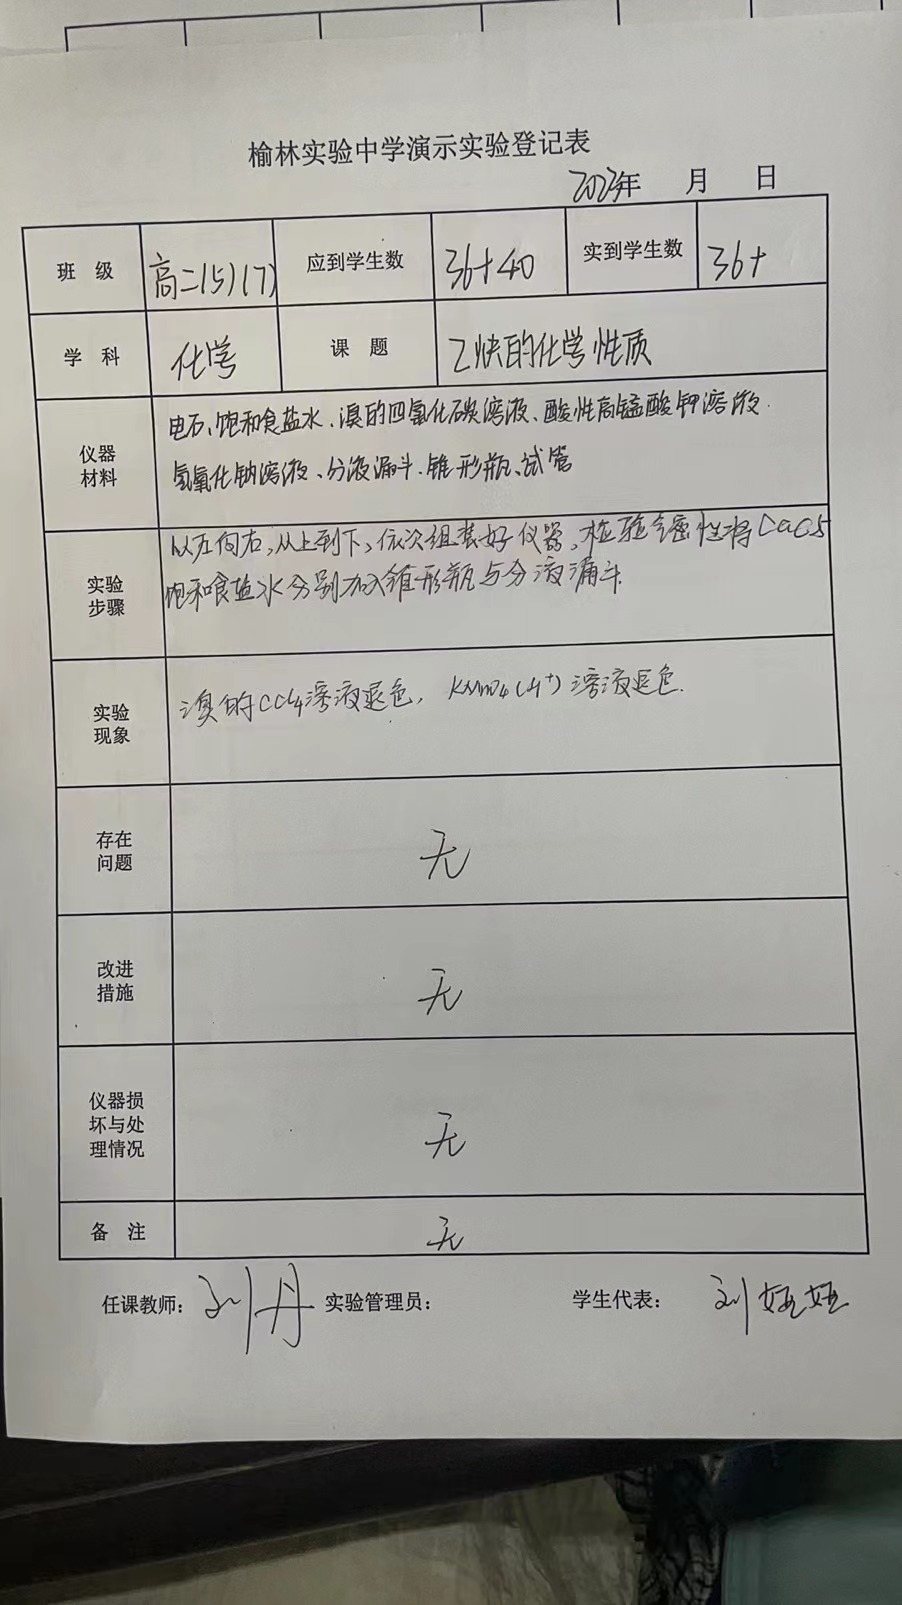 榆林实验中学演示实验登记表
2023年 月 日
班 级 高二(5)(7) 应到学生数 36+40 实到学生数 36+
学 科 化学 课 题 乙炔的化学性质
仪器材料 电石、饱和食盐水、溴的四氯化碳溶液、酸性高锰酸钾溶液.
氢氧化钠溶液、分液漏斗.锥形瓶、试管
实验步骤 从左向右,从上到下,依次组装好仪器,检验气密性将CaC5
饱和食盐水分别加入锥形瓶与分液漏斗.
实验现象 溴的CCl4溶液退色, KMnO4(H+)溶液退色.
存在问题 无
改进措施 无
仪器损坏与处理情况 无
备 注 无
任课教师: 刘丹 实验管理员: 学生代表: 刘妞妞